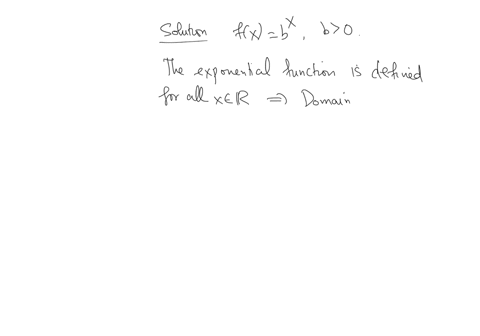 Solution f(x) = b^x, b > 0.
The exponential function is defined
for all x∈ℝ ⇒ Domain